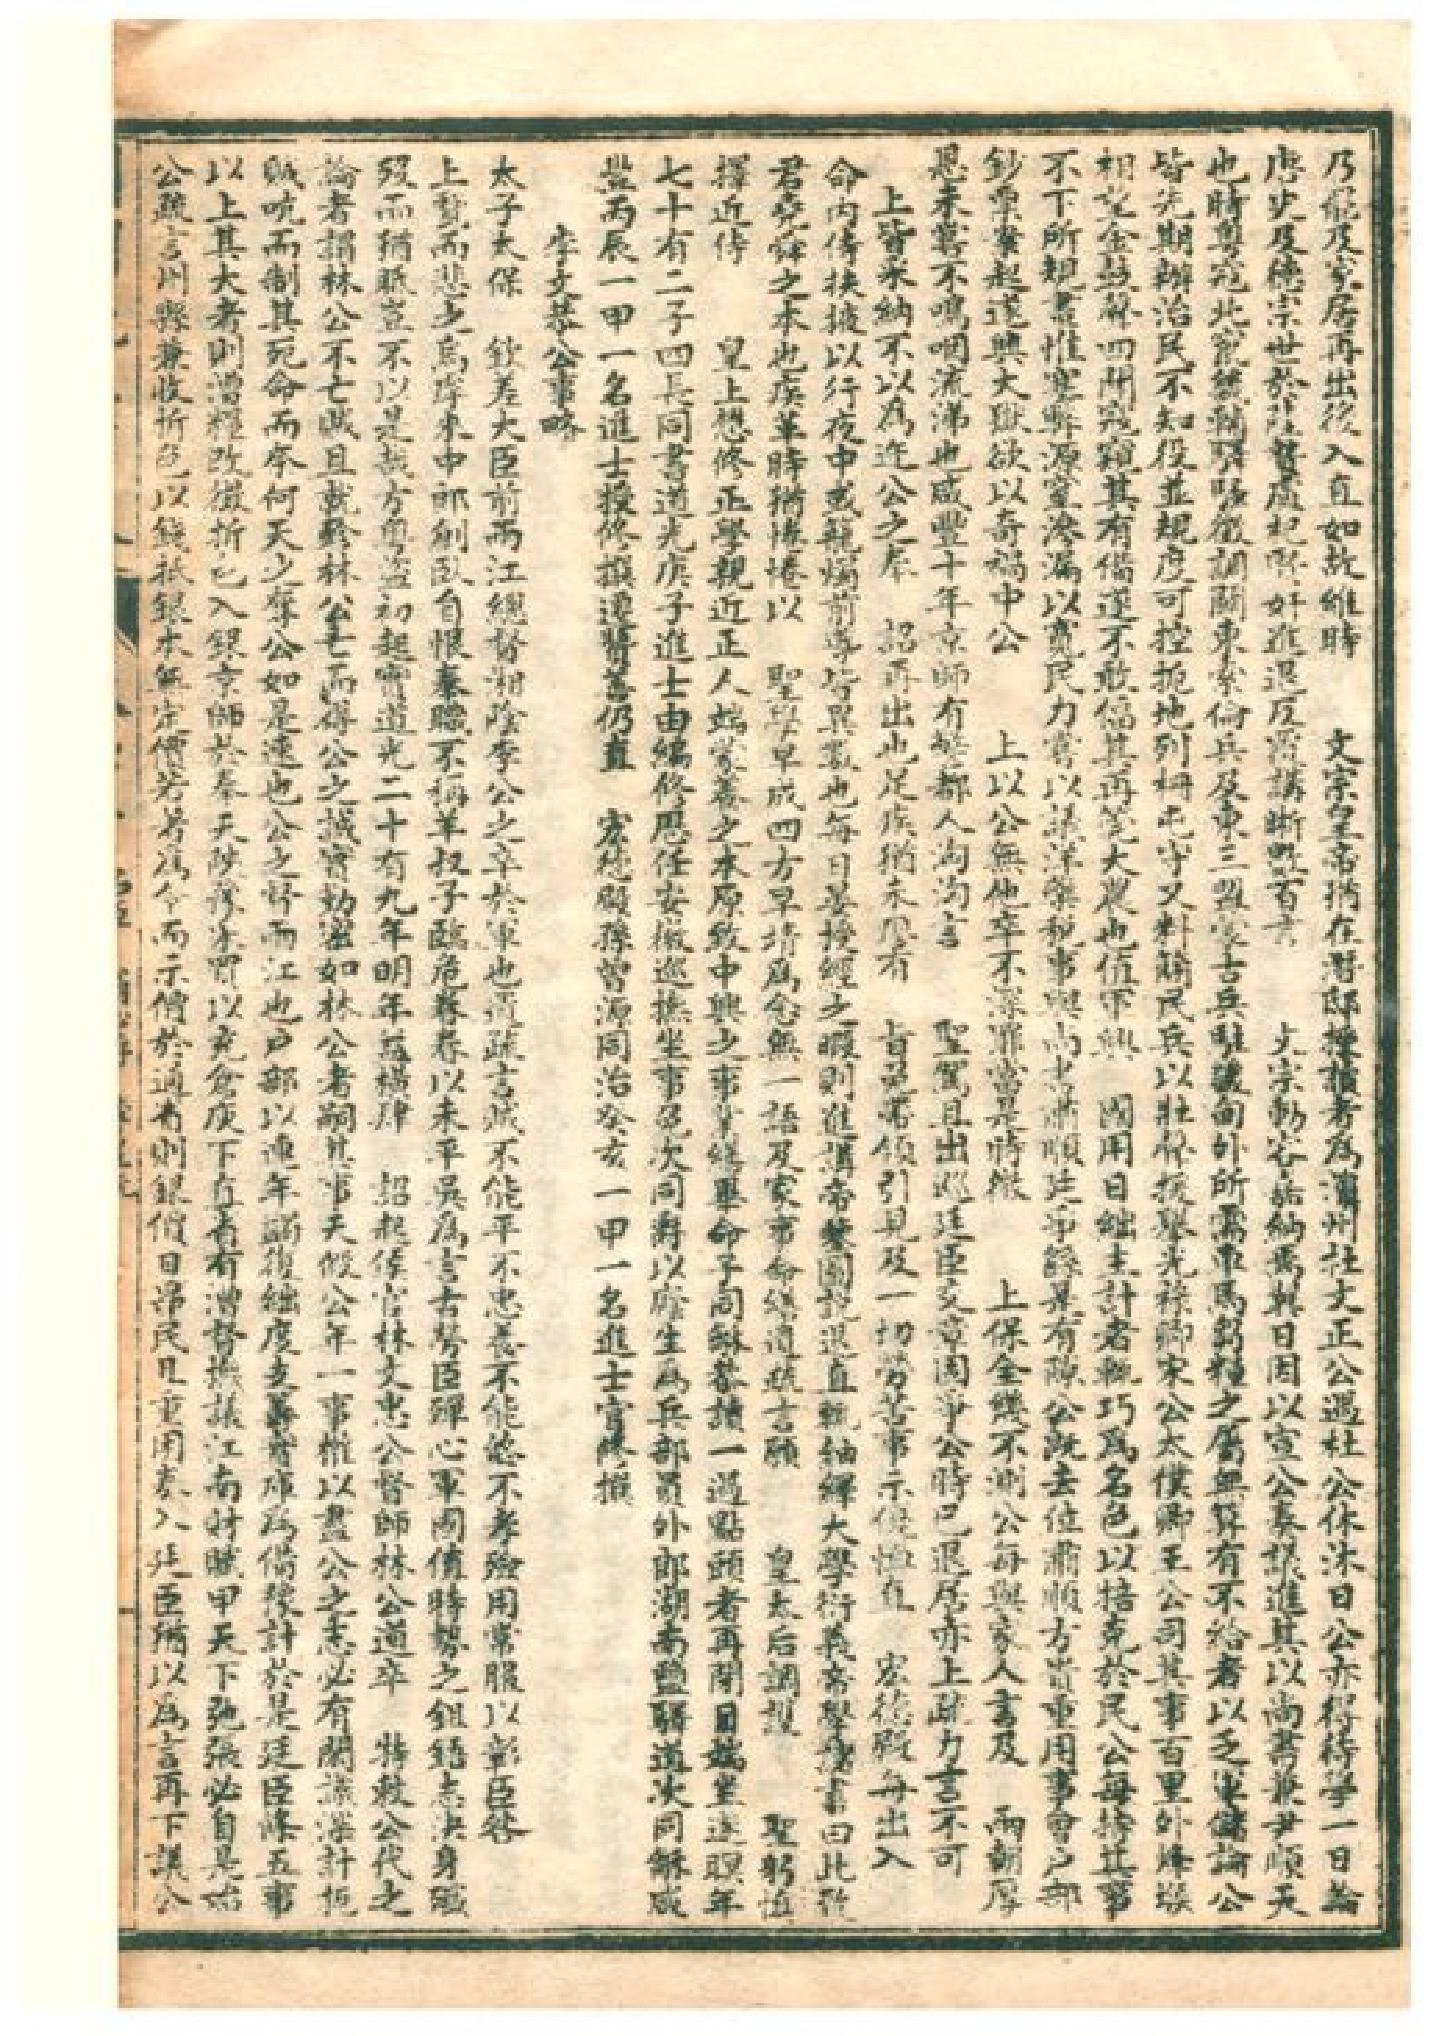 乃罷及家居再出後入直如故維時　文宗皇帝猶在潛邸授讀者為濱州杜文正公遇杜公休沐日公亦得侍學一日論
唐史及德宗世於陸贄盧杞賢奸進退反覆講晰㡬百言　文宗動容嘉納焉異日因以宣公奏議進其以尚書兼尹順天
也時粵寇北竄畿輔騷徵調關東索倫兵及東三盟蒙古兵駐畿甸外所需車馬芻糧之屬無算有不給者以乏軍儲論公
皆先期辦治民不知役並規度可控扼地列柵屯守又料簡民兵以壯聲援舉光祿卿宋公太僕卿王公司其事百里外烽堠
相望金鼓聲四聞寇窺其有備遂不敢偪其再筦大農也值軍興　國用日絀主計者輒巧為名色以掊克於民公每持其事
不下所規畫惟塞弊源窒滲漏以寬民力嘗以議洋藥稅事與尚書肅順廷爭繇是有隙公既去位肅順方貴重用事會戶部
鈔票案起遂興大獄欲以奇禍中公　上以公無他卒不深罪當是時微　上保全幾不測公每與家人言及　兩朝厚
恩未嘗不嗚咽流涕也咸豐十年京師有警都人洶洶言　聖駕且出巡廷臣交章固爭公時已退居亦上疏力言不可
上皆采納不以為迕公之奉　詔再出也足疾猶未愈有　旨免帶領引見及一切勞苦事示優恤直　宏德殿每出入
命內侍扶掖以行夜中或籠燭前導皆異數也每日善授經之暇則進講帝鑒圖說退直輒紬繹大學衍義帝學等書曰此致
君堯舜之本也疾革時猶惓惓以　聖學早成四方早靖為念無一語及家事命繕遺疏言願　皇太后調護　聖躬慎
擇近侍　皇上懋修正學親近正人端蒙養之本原致中興之事業繕畢命子同龢恭讀一過點頭者再閉目端坐遂暝年
七十有二子四長同書道光庚子進士由編修歷任安徽巡撫坐事免次同爵以廕生為兵部員外郎湖南鹽驛道次同龢咸
豐丙辰一甲一名進士授修撰遷贊善仍直　宏德殿孫曾源同治癸亥一甲一名進士官修撰
李文恭公事略
太子太保　欽差大臣前兩江總督湘陰李公之卒於軍也遺疏言賊不能平不忠養不能終不孝殮用常服以彰臣咎
上覽而悲之焉岸來中郎創臥自恨奉職不稱羊叔子臨危眷眷以未平吳為言古勞臣殫心軍國值時勢之鉏鋙志決身殲
歿而猶眂豈不以是哉方粵盜初起實道光二十有九年明年益橫肆　詔起侯官林文忠公督師林公道卒　特敕公代之
論者謂林公不亡賊且就殄林公亡而得公之誠實勤密如林公者嗣其事天假公年一事權以盡公之志必有關議深計扼
賊吭而制其死命而奈何天之奪公如是速也公之督兩江也戶部以連年蠲復絀度支籌實庫為備豫計於是廷臣條五事
以上其大者則漕糧改徵折色入銀京師於奉天陝豫采買以充倉庾下直省有漕督撫議江南財賦甲天下弛張必自是始
公疏言州縣兼收折色以錢抵銀本無定價若著為令而示價於通省則銀價日昂民且重困奏入廷臣猶以為言再下議公